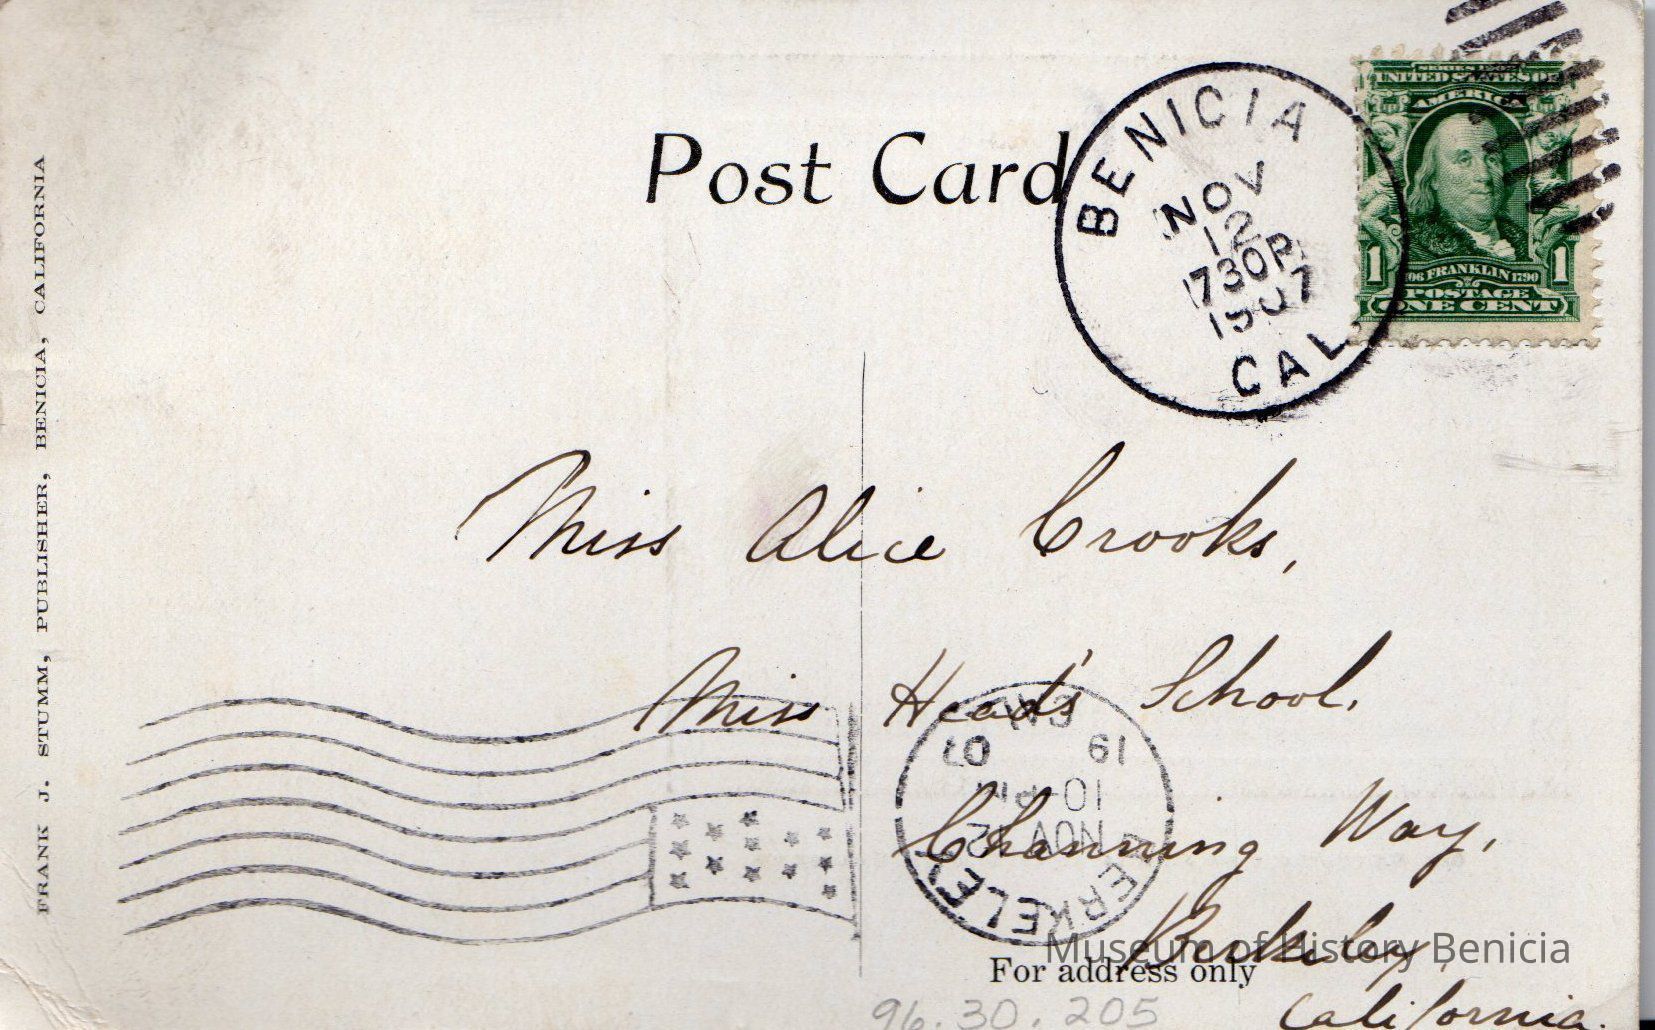 Post Card
BENICIA
NOV
12
730P
1907
CAL.
SERIES 1902
UNITED STATES OF
AMERICA
1706 FRANKLIN 1790
1 1
POSTAGE
ONE CENT
FRANK J. STUMM, PUBLISHER, BENICIA, CALIFORNIA
Miss Alice Crooks,
Miss Head's School.
Channing Way,
Berkeley,
California.
BERKELEY
NOV 12
10-PM
19 07
CAL.
For address only
Museum of History Benicia
96.30.205